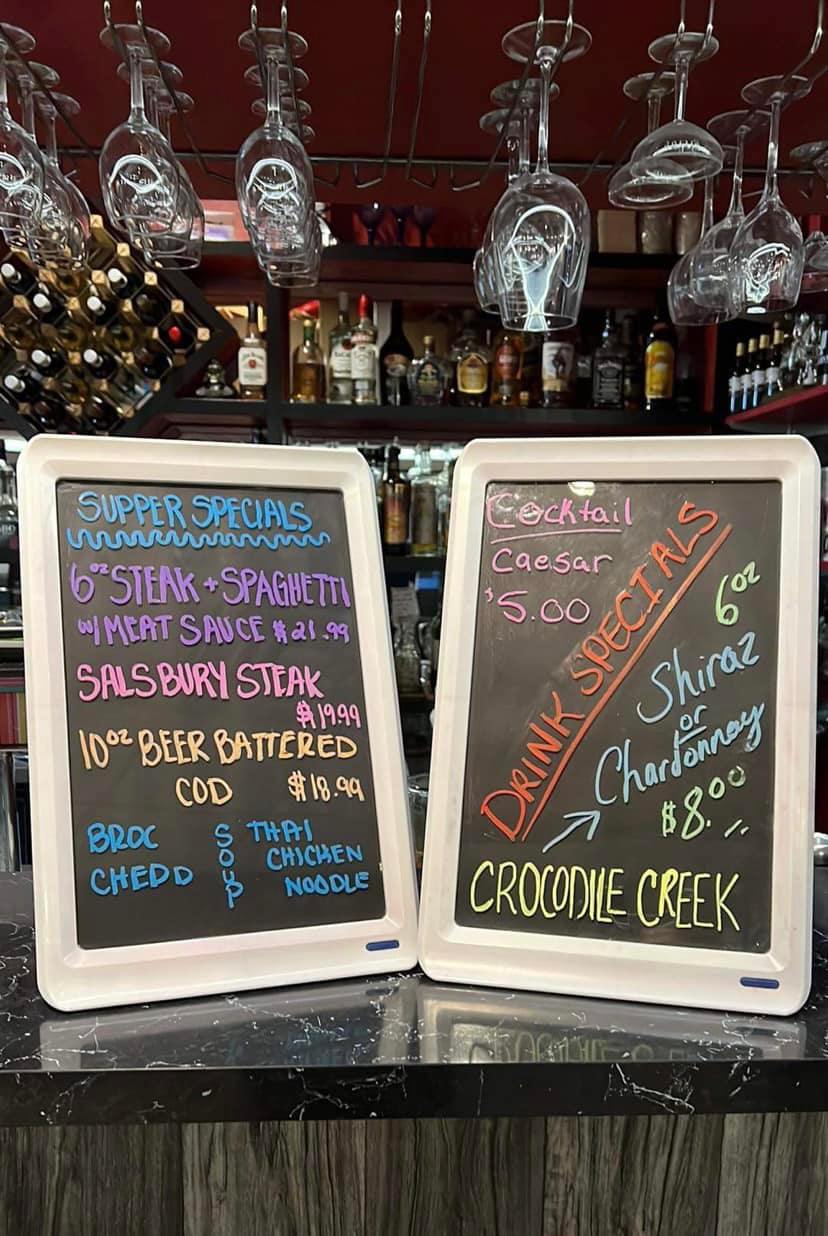 SUPPER SPECIALS
6oz STEAK + SPAGHETTI
W/ MEAT SAUCE $21.99
SALSBURY STEAK
$19.99
10oz BEER BATTERED
COD $18.99
BROC
CHEDD
SOUP
THAI
CHICKEN
NOODLE
Cocktail
Caesar
$5.00
DRINK SPECIALS
6oz
Shiraz
or
Chardonnay
$8.00
CROCODILE CREEK